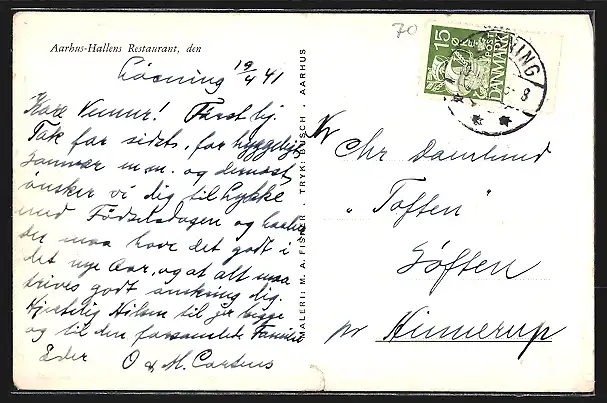 Aarhus-Hallens Restaurant, den
Løsning 19/4 41
Kære Venner! Først lig.
Tak for sidst, for hyggeligt
Samvær m.m. og dernæst
ønsker vi dig til Lykke
med Fødselsdagen og haaber
du maa have det godt i
det nye Aar, og at alt maa
trives godt omkring dig.
Hjertelig Hilsen til jer begge
og til den forsamlede Familie
Eder O & M. Carstens
MALERI: M. A. FISKER . TRYK: BUSCH . AARHUS
70
15
DANMARK
NING
8
Hr
Chr Damlund
"Toften"
Søften
pr Hinnerup